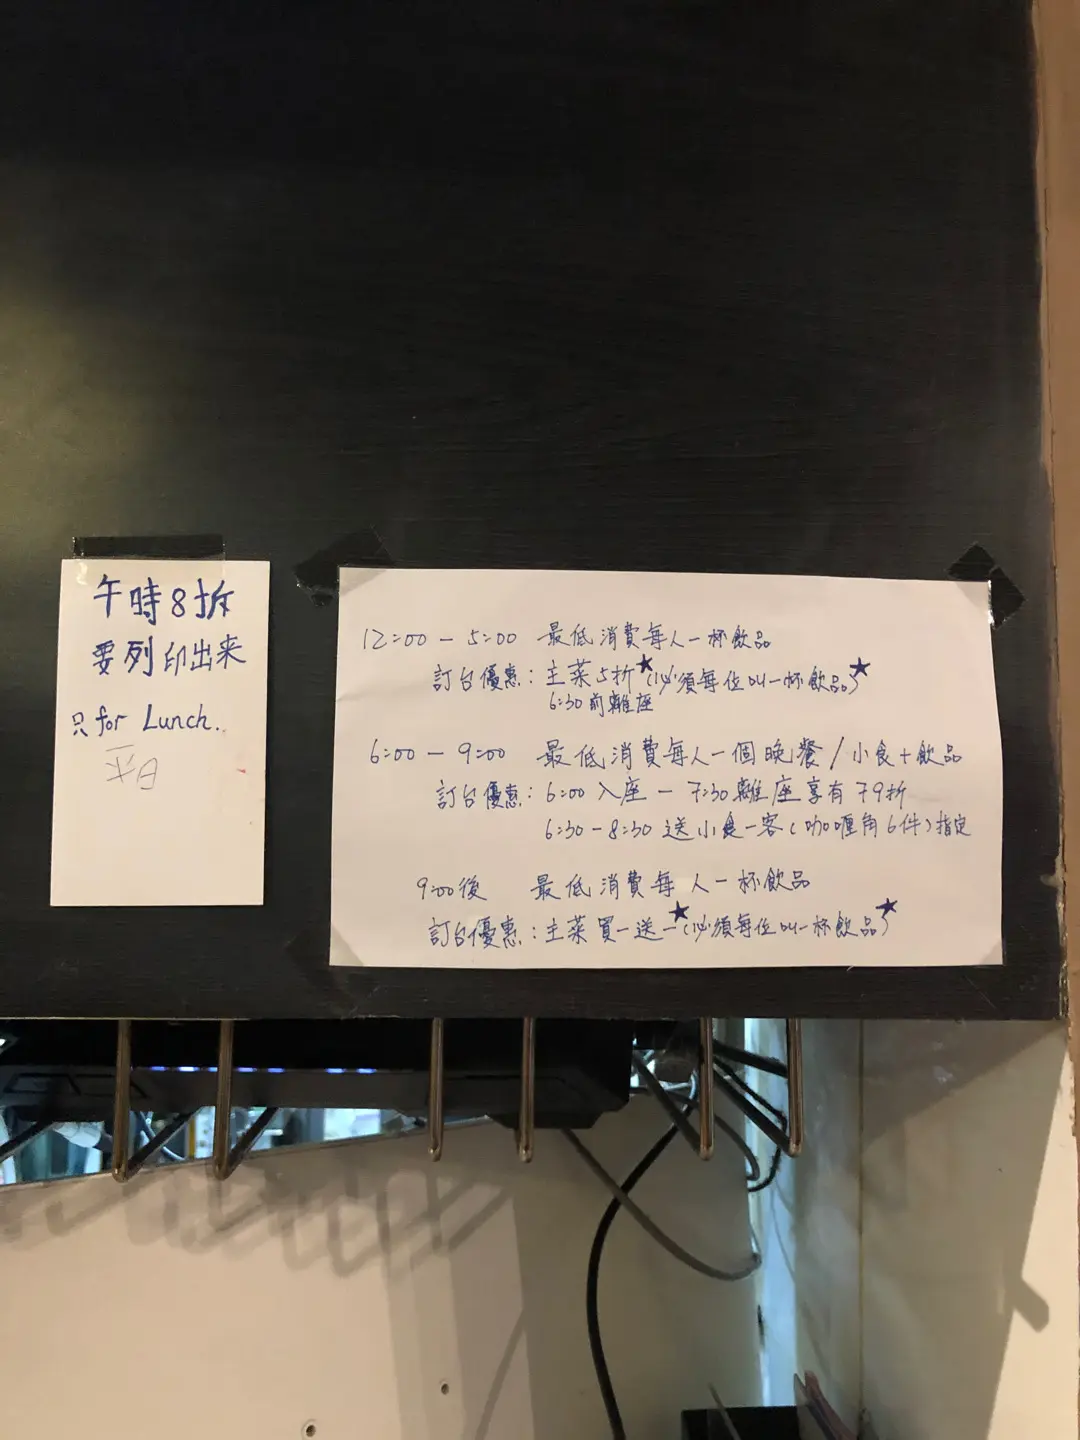 午時8拆
要列印出来
只for Lunch.
12:00 - 5:00 最低消費每人一杯飲品
訂台優惠: 主菜5折★(必須每位叫一杯飲品)★
6:30前離座
6:00 - 9:00 最低消費每人一個晚餐/小食+飲品
訂台優惠: 6:00入座-7:30離座享有79折
6:30-8:30送小食一客(咖喱角6件)指定
9:00後 最低消費每人一杯飲品
訂台優惠: 主菜買一送一★(必須每位叫一杯飲品)★